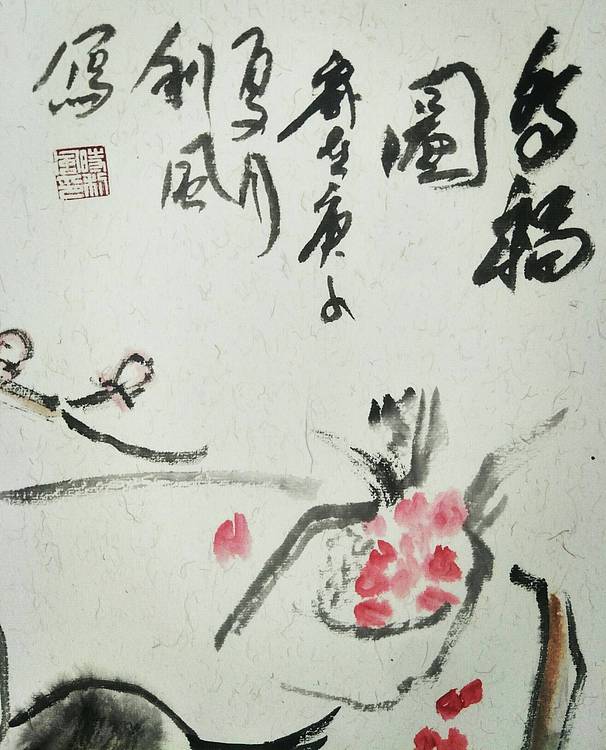 多福
圖
歲在庚子
夏月
利風
寫